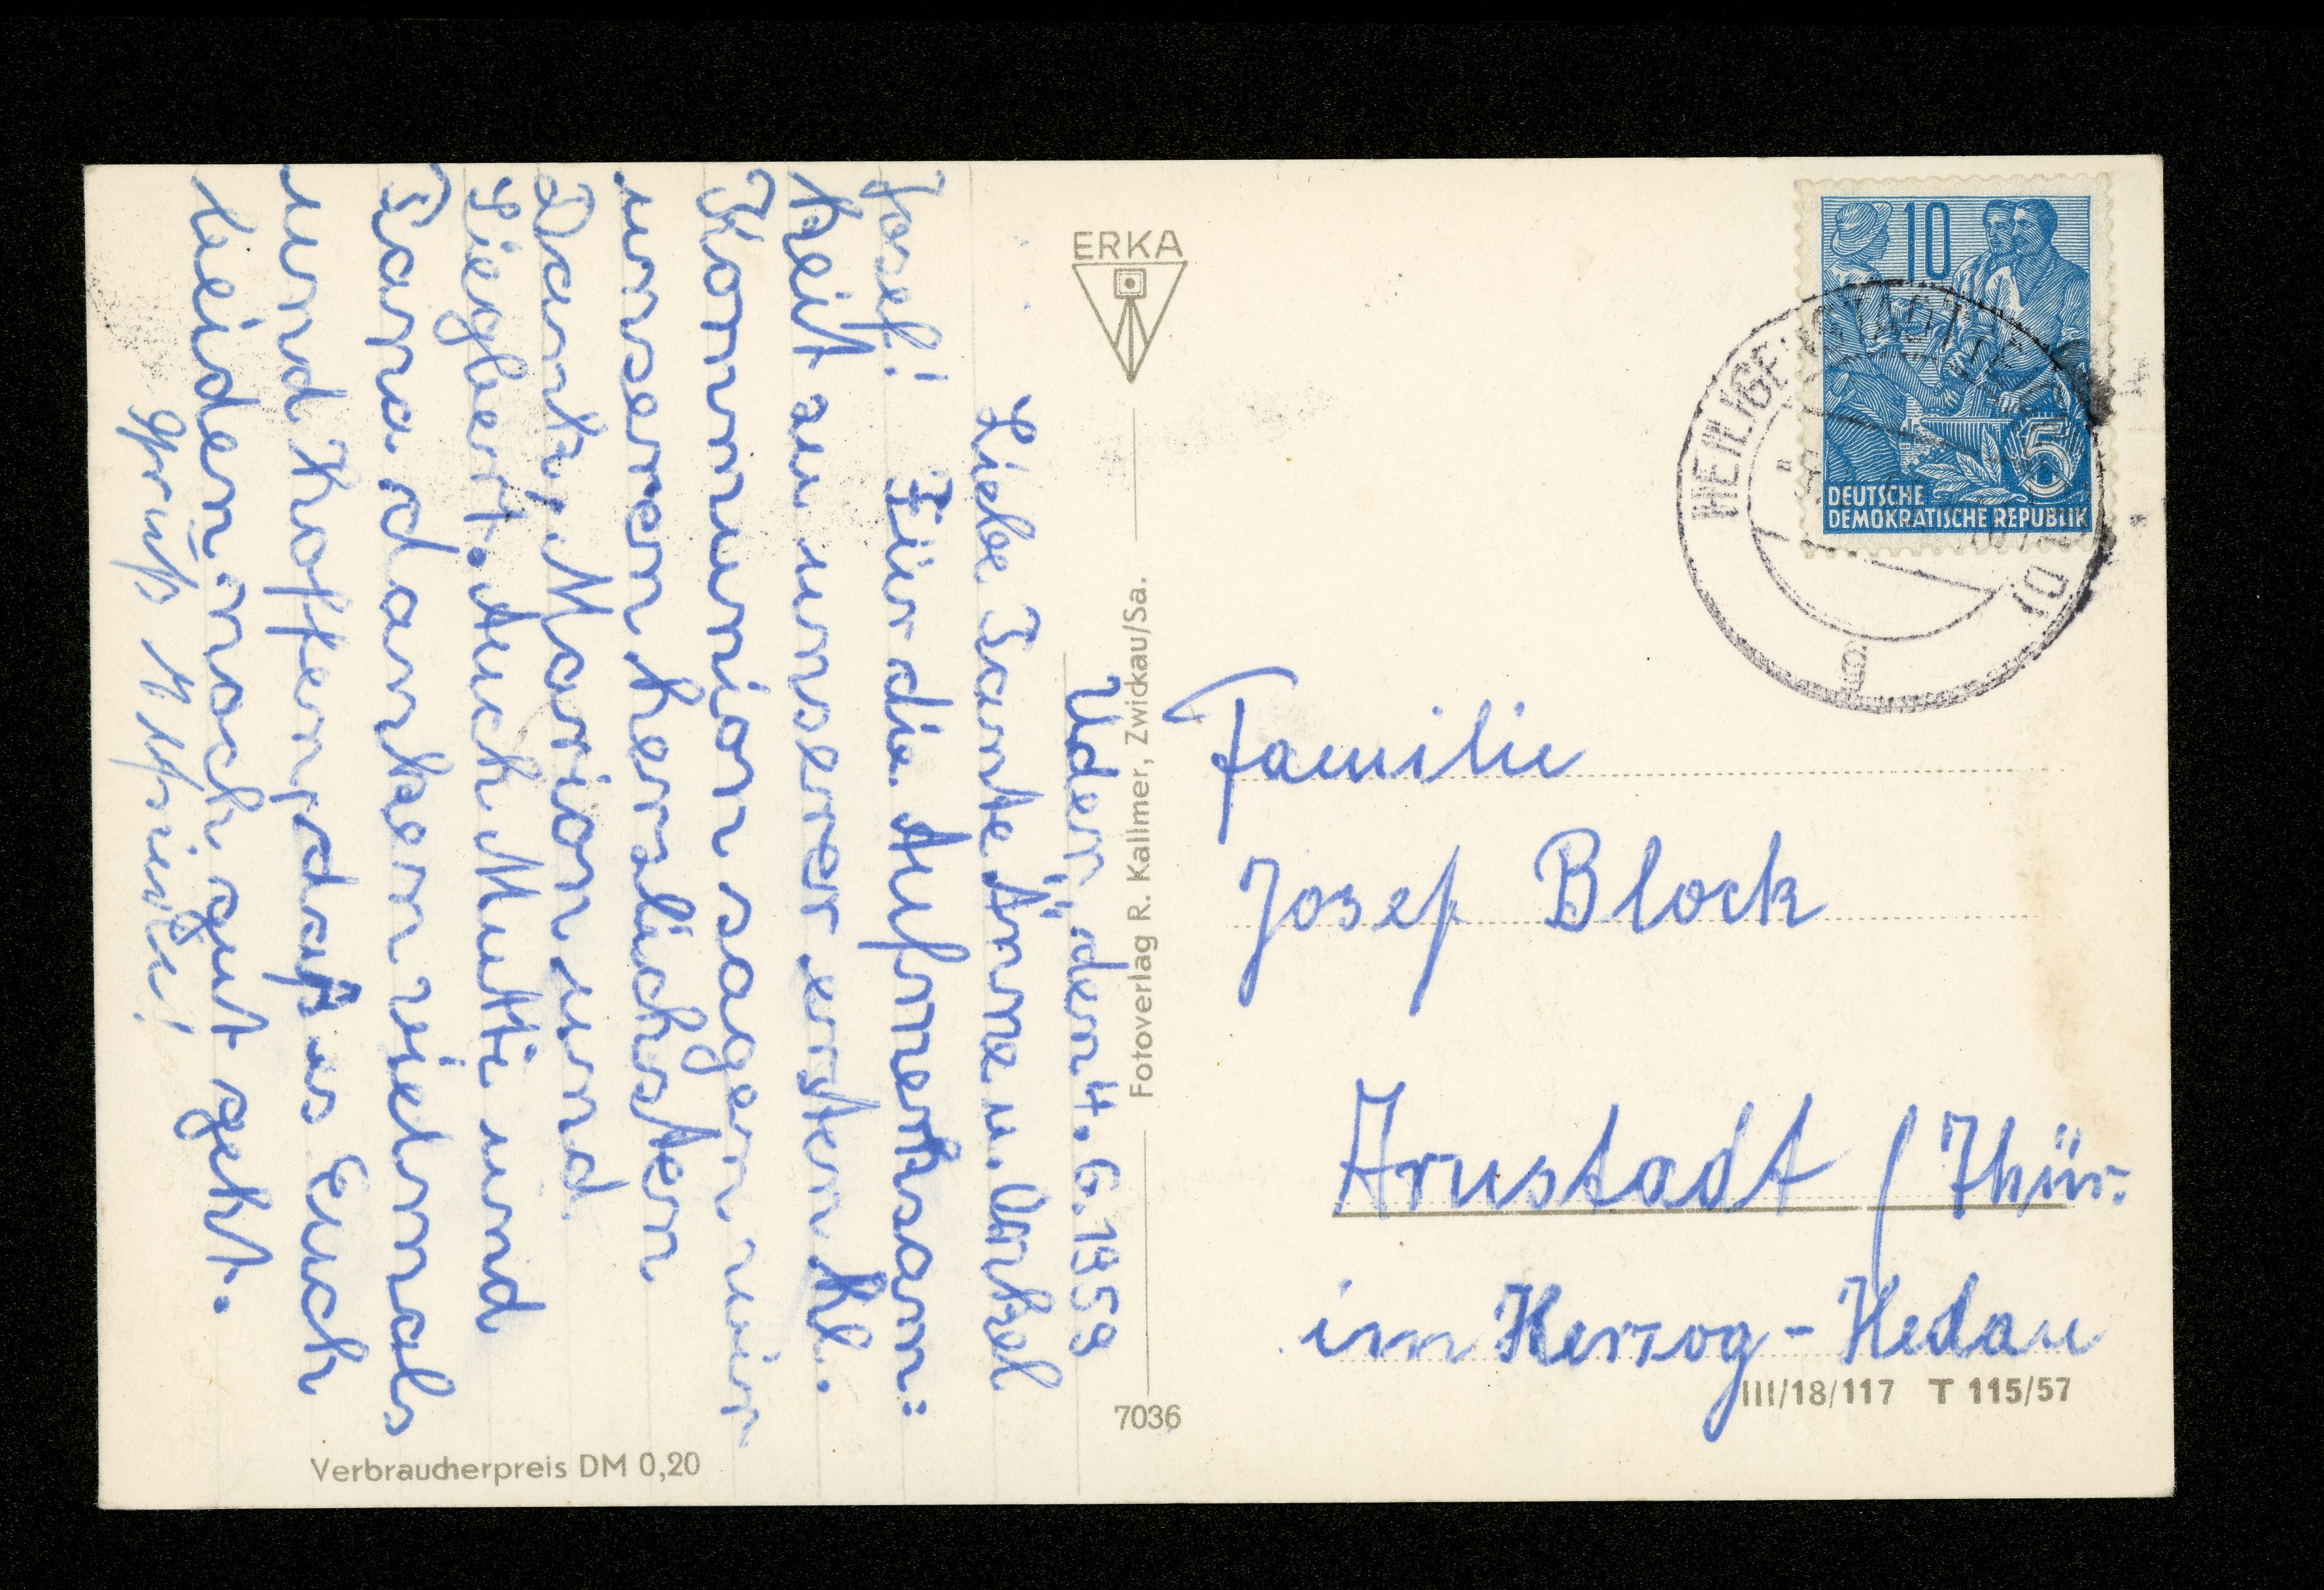 Uder, den 4. 6. 1959
Liebe Tante Änne u. Onkel
Josef!
Für die Aufmerksam:
keit zu unserer ersten hl.
Kommunion sagen wir
unseren herzlichsten
Dank, Marion und
Siegbert. Auch Mutti und
Papa danken vielmals
und hoffen, daß es Euch
beiden noch gut geht.
Gruß
ERKA
Fotoverlag R. Kallmer, Zwickau/Sa.
7036
Verbraucherpreis DM 0,20
10
5
DEUTSCHE
DEMOKRATISCHE REPUBLIK
HEILIGENSTADT (EICHSFELD)
Familie
Josef Block
Arnstadt / Thür.
im Herzog-Hedan
III/18/117 T 115/57